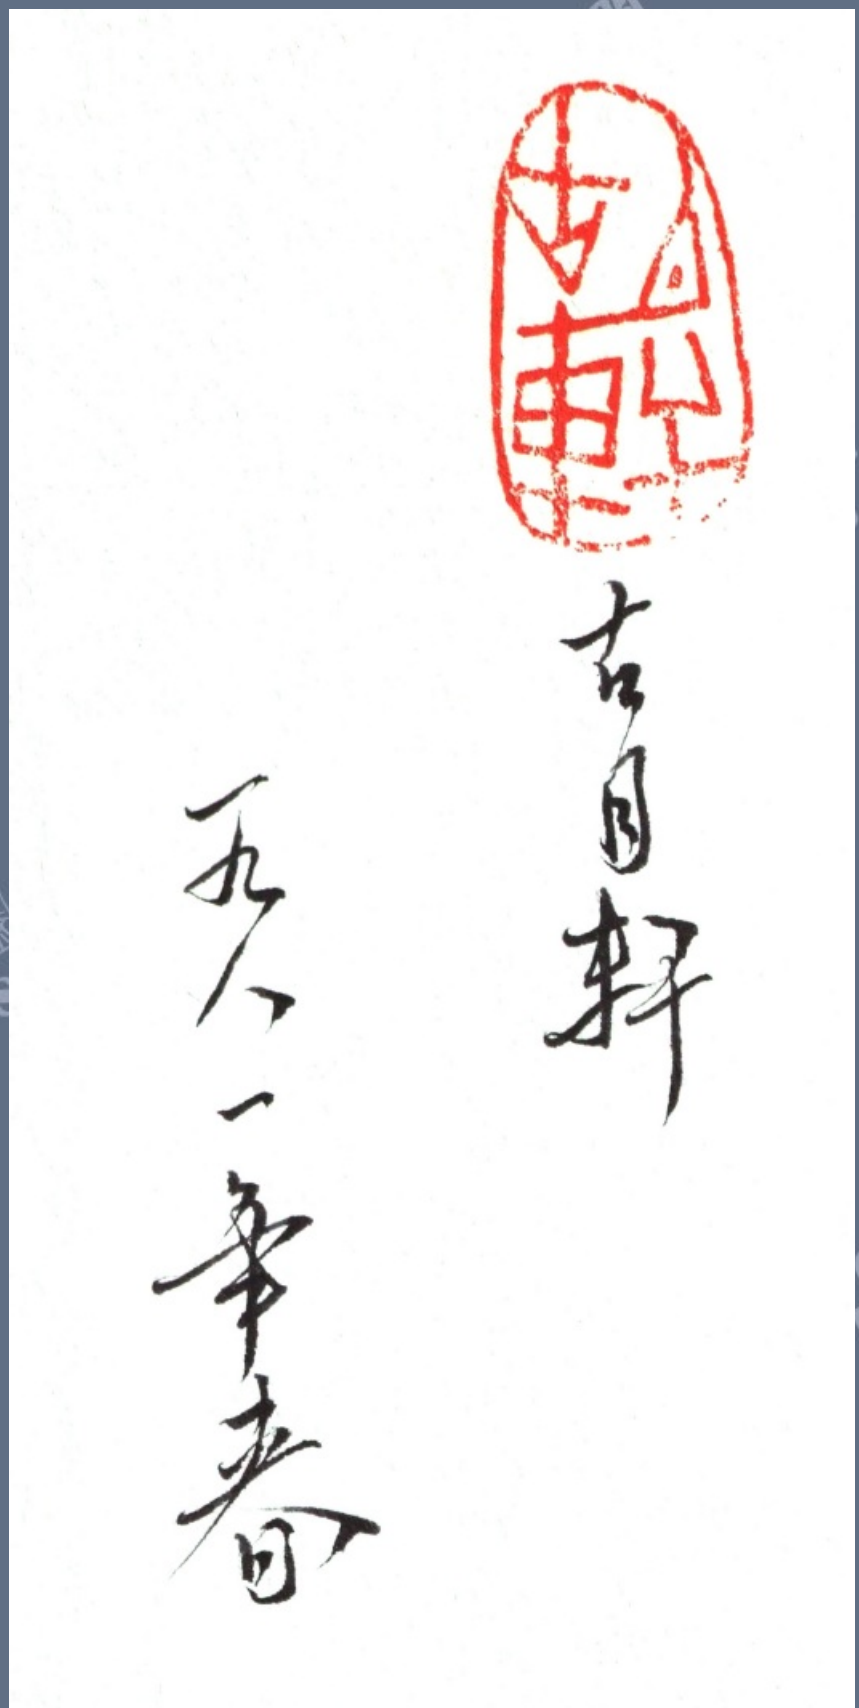 古月軒
古月軒
一九八一年春